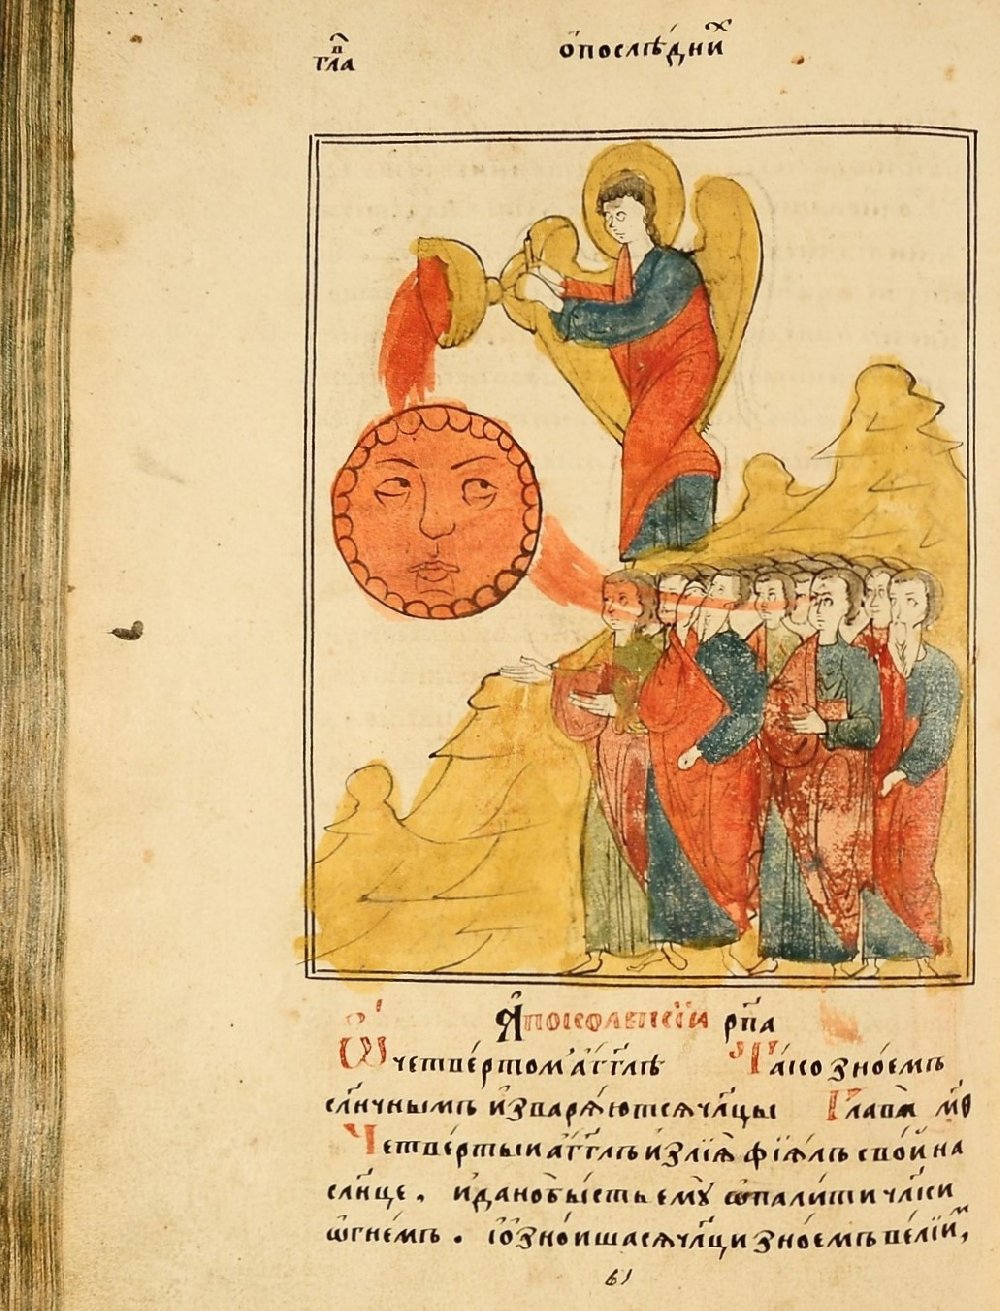 гла҃в
ѻ҆послѣ́дних
А҆покⷪ҇алепсїа рп҃а
Ѿ четве́ртом а҆́гг҃лѣ Ꙗ҆́ко зно́емъ
сл҃нчнымъ и҆зварѧ́ютсѧ чл҃цы Глава̀ м҃ѳ
Четве́ртыи а҆́гг҃лъ и҆злїѧ̀ фїѧ́лъ сво́й на
сл҃нце. и҆ дано̀ бы́сть ємꙋ̀ ѡ҆пали́ти чл҃ки
ѻ҆гне́мъ. Ї҆ ѻ҆зно́ишасѧ чл҃цы зно́емъ ве́лїим,
61